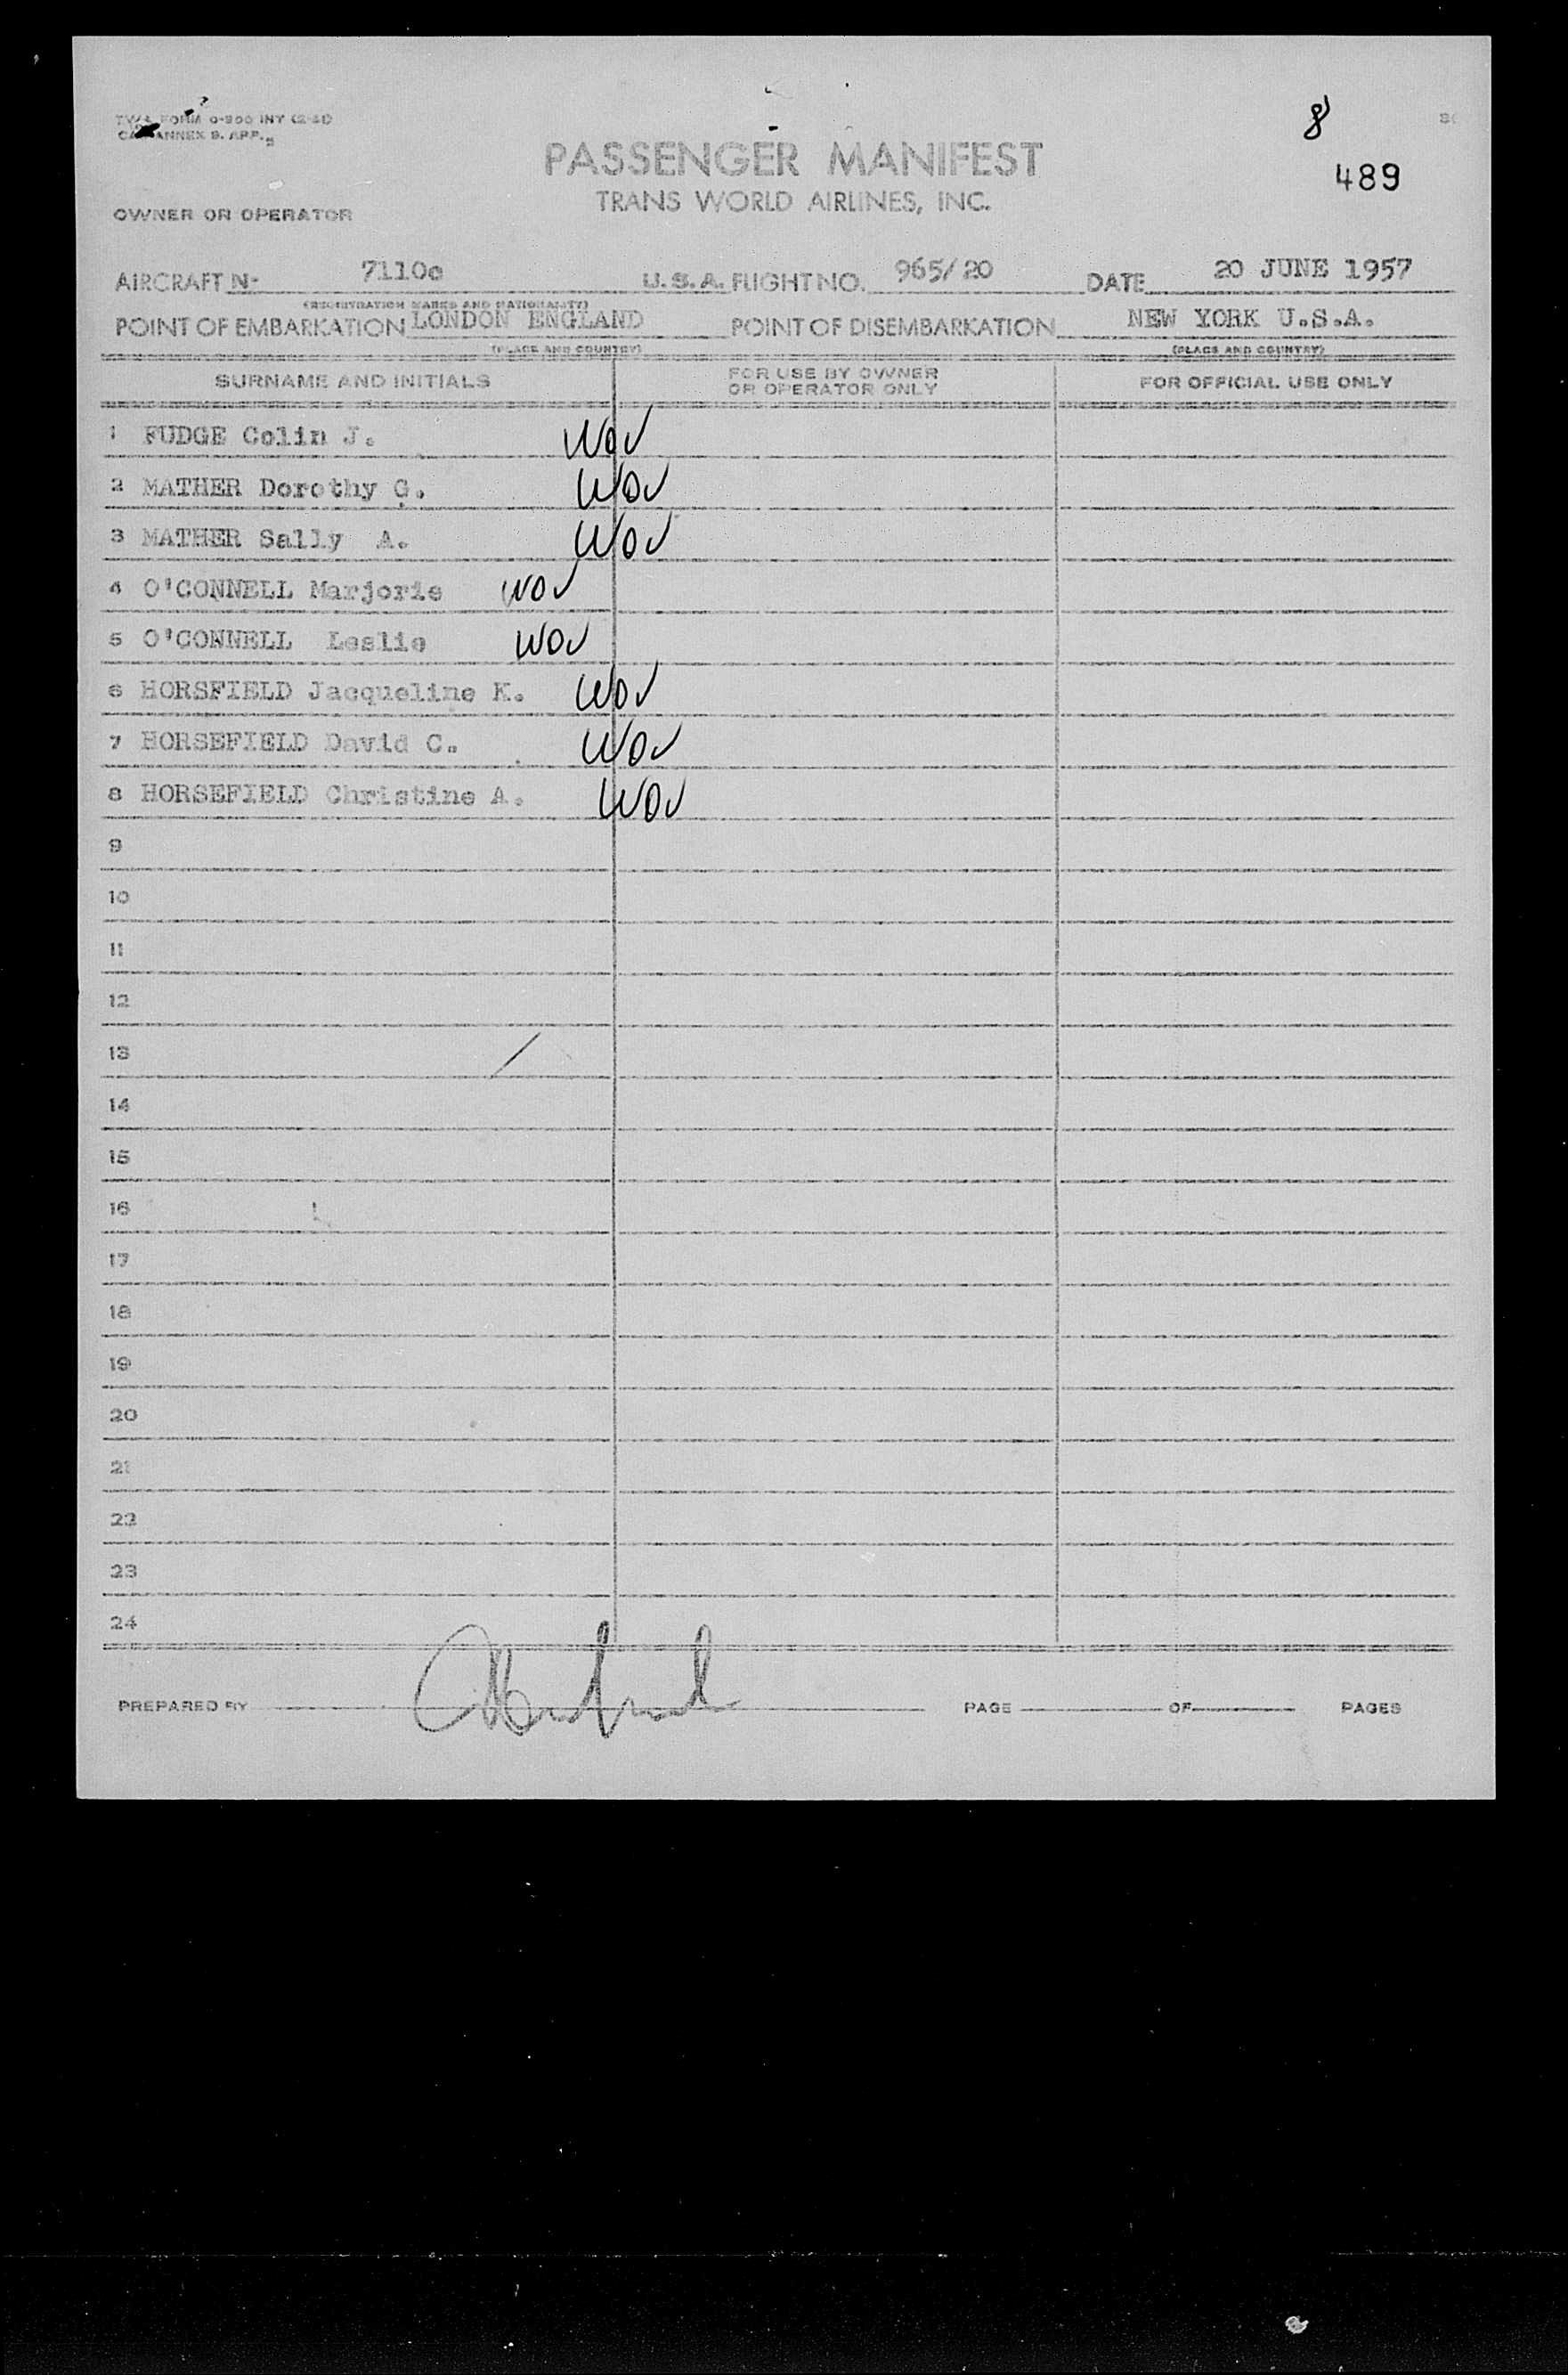 TWA FORM 0-900 INT (2-51)
ANNEX 9. APP.
8
PASSENGER MANIFEST
489
TRANS WORLD AIRLINES, INC.
OWNER OR OPERATOR
AIRCRAFT No 7110c U.S.A. FLIGHT NO. 965/20 DATE 20 JUNE 1957
(REGISTRATION MARKS AND NATIONALITY)
POINT OF EMBARKATION LONDON ENGLAND POINT OF DISEMBARKATION NEW YORK U.S.A.
(PLACE AND COUNTRY) (PLACE AND COUNTRY)
SURNAME AND INITIALS FOR USE BY OWNER OR OPERATOR ONLY FOR OFFICIAL USE ONLY
1 FUDGE Colin J. WOV
2 MATHER Dorothy G. WOV
3 MATHER Sally A. WOV
4 O'CONNELL Marjorie WOV
5 O'CONNELL Leslie WOV
6 HORSFIELD Jacqueline K. WOV
7 HORSEFIELD David C. WOV
8 HORSEFIELD Christine A. WOV
9
10
11
12
13
14
15
16
17
18
19
20
21
22
23
24
PREPARED BY PAGE OF PAGES